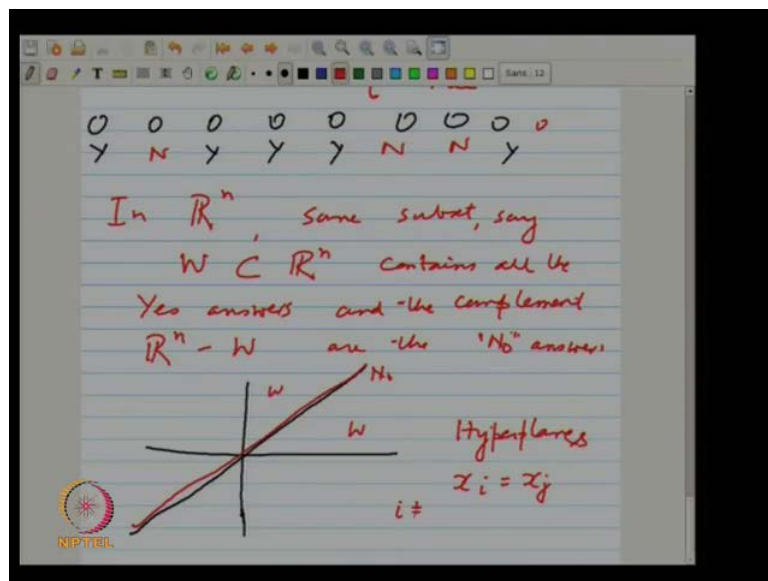 Sans 12
O O O O O O O O O
Y N Y Y Y N N Y
In ℝⁿ, some subset, say
W ⊂ ℝⁿ contains all the
Yes answers and the complement
ℝⁿ - W are the "No" answers
No
W
W
Hyperplanes
xᵢ = xⱼ
i ≠
NPTEL